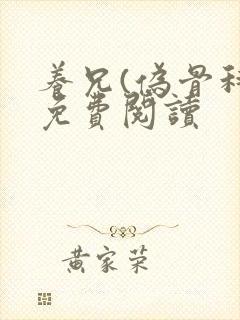 養兄(偽骨科
免費閱讀
黃家荣